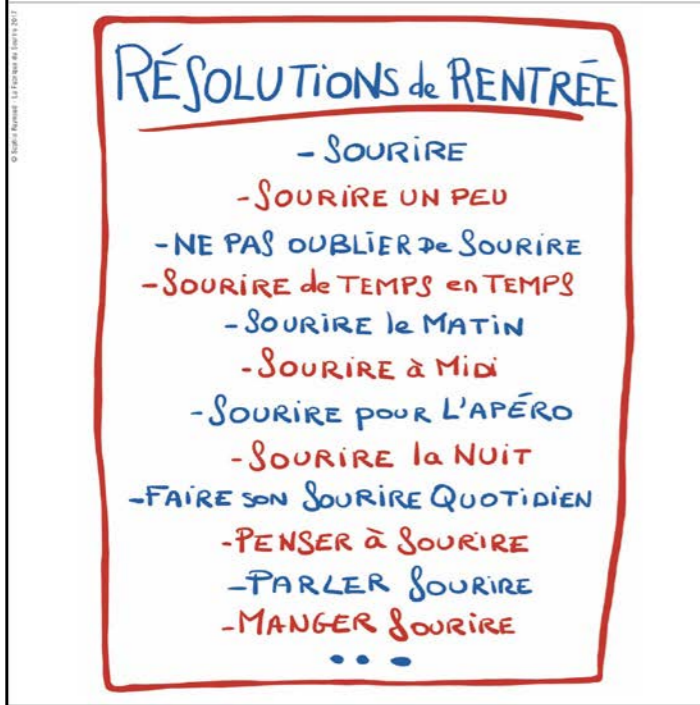 RÉSOLUTIONS de RENTRÉE
- SOURIRE
- SOURIRE UN PEU
- NE PAS OUBLIER De SOURIRE
- SOURIRE de TEMPS en TEMPS
- SOURIRE le MATIN
- SOURIRE à MIDI
- SOURIRE pour L'APÉRO
- SOURIRE la NUIT
- FAIRE SON SOURIRE QUOTIDIEN
- PENSER à SOURIRE
- PARLER SOURIRE
- MANGER SOURIRE
...